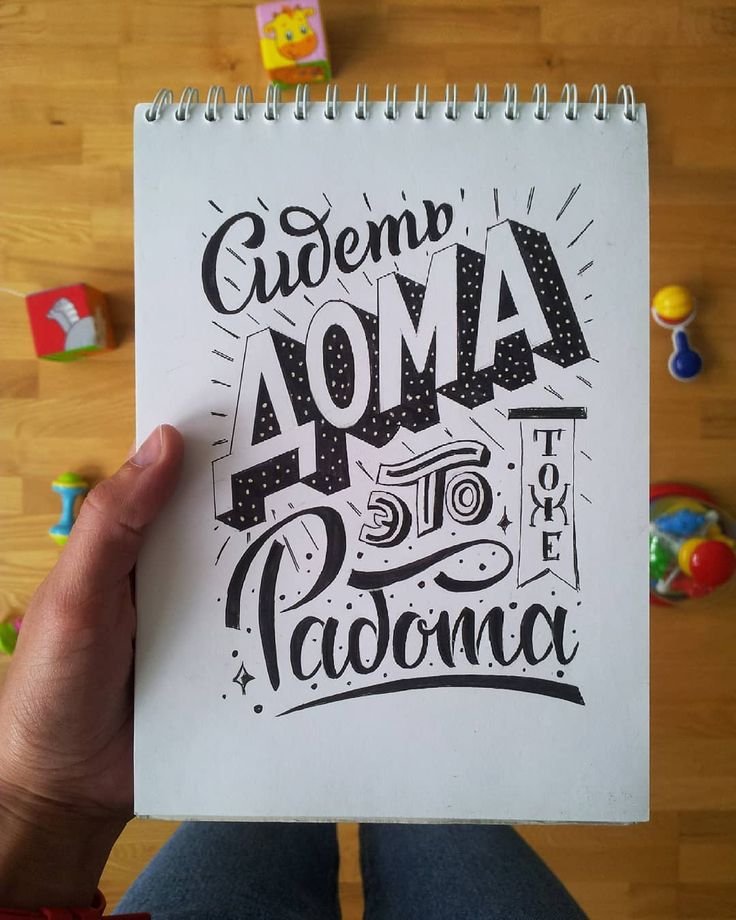 Сидеть
ДОМА
ЭТО
ТОЖЕ
Работа